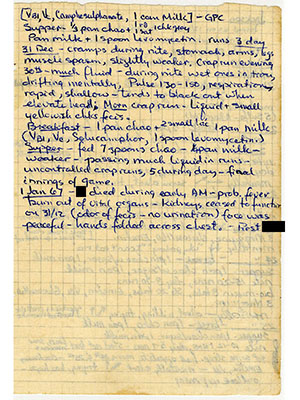 [VBI, Ve, Camplesulphanate, 1 can Milk] - GPC
Supper - 3 pan chao + 1 rd chk gray
1 pan milk + 1 spoon levomycetin. runs 3 day
31 Dec - cramps during nite, stomach, arms, legs
muscle spasm, slightly weaker. Crap run evening
30th - much fluid - during nite wet ones in trou,
drifting mentally. Pulse 130-150, respirations
rapid, shallow - tends to black out when
elevate head, Morn crap run - liquid + small
yellowish chks feces.
Breakfast - 1 pan chao + 2 small 1 pan Milk
(VBI, Ve, Solucamphor, 1 spoon levomycetin)
Supper - fed 7 spoons chao - ½ pan milk -
weaker - passing much liquid in runs -
uncontrolled crap runs, 5 during day - final
innings of game.
1 Jan 67 died during early AM - prob. fever
burn out of vital organs - kidneys, ceased to function
on 31/12 (color of feces - no urination) face was
peaceful - hands folded across chest. - First